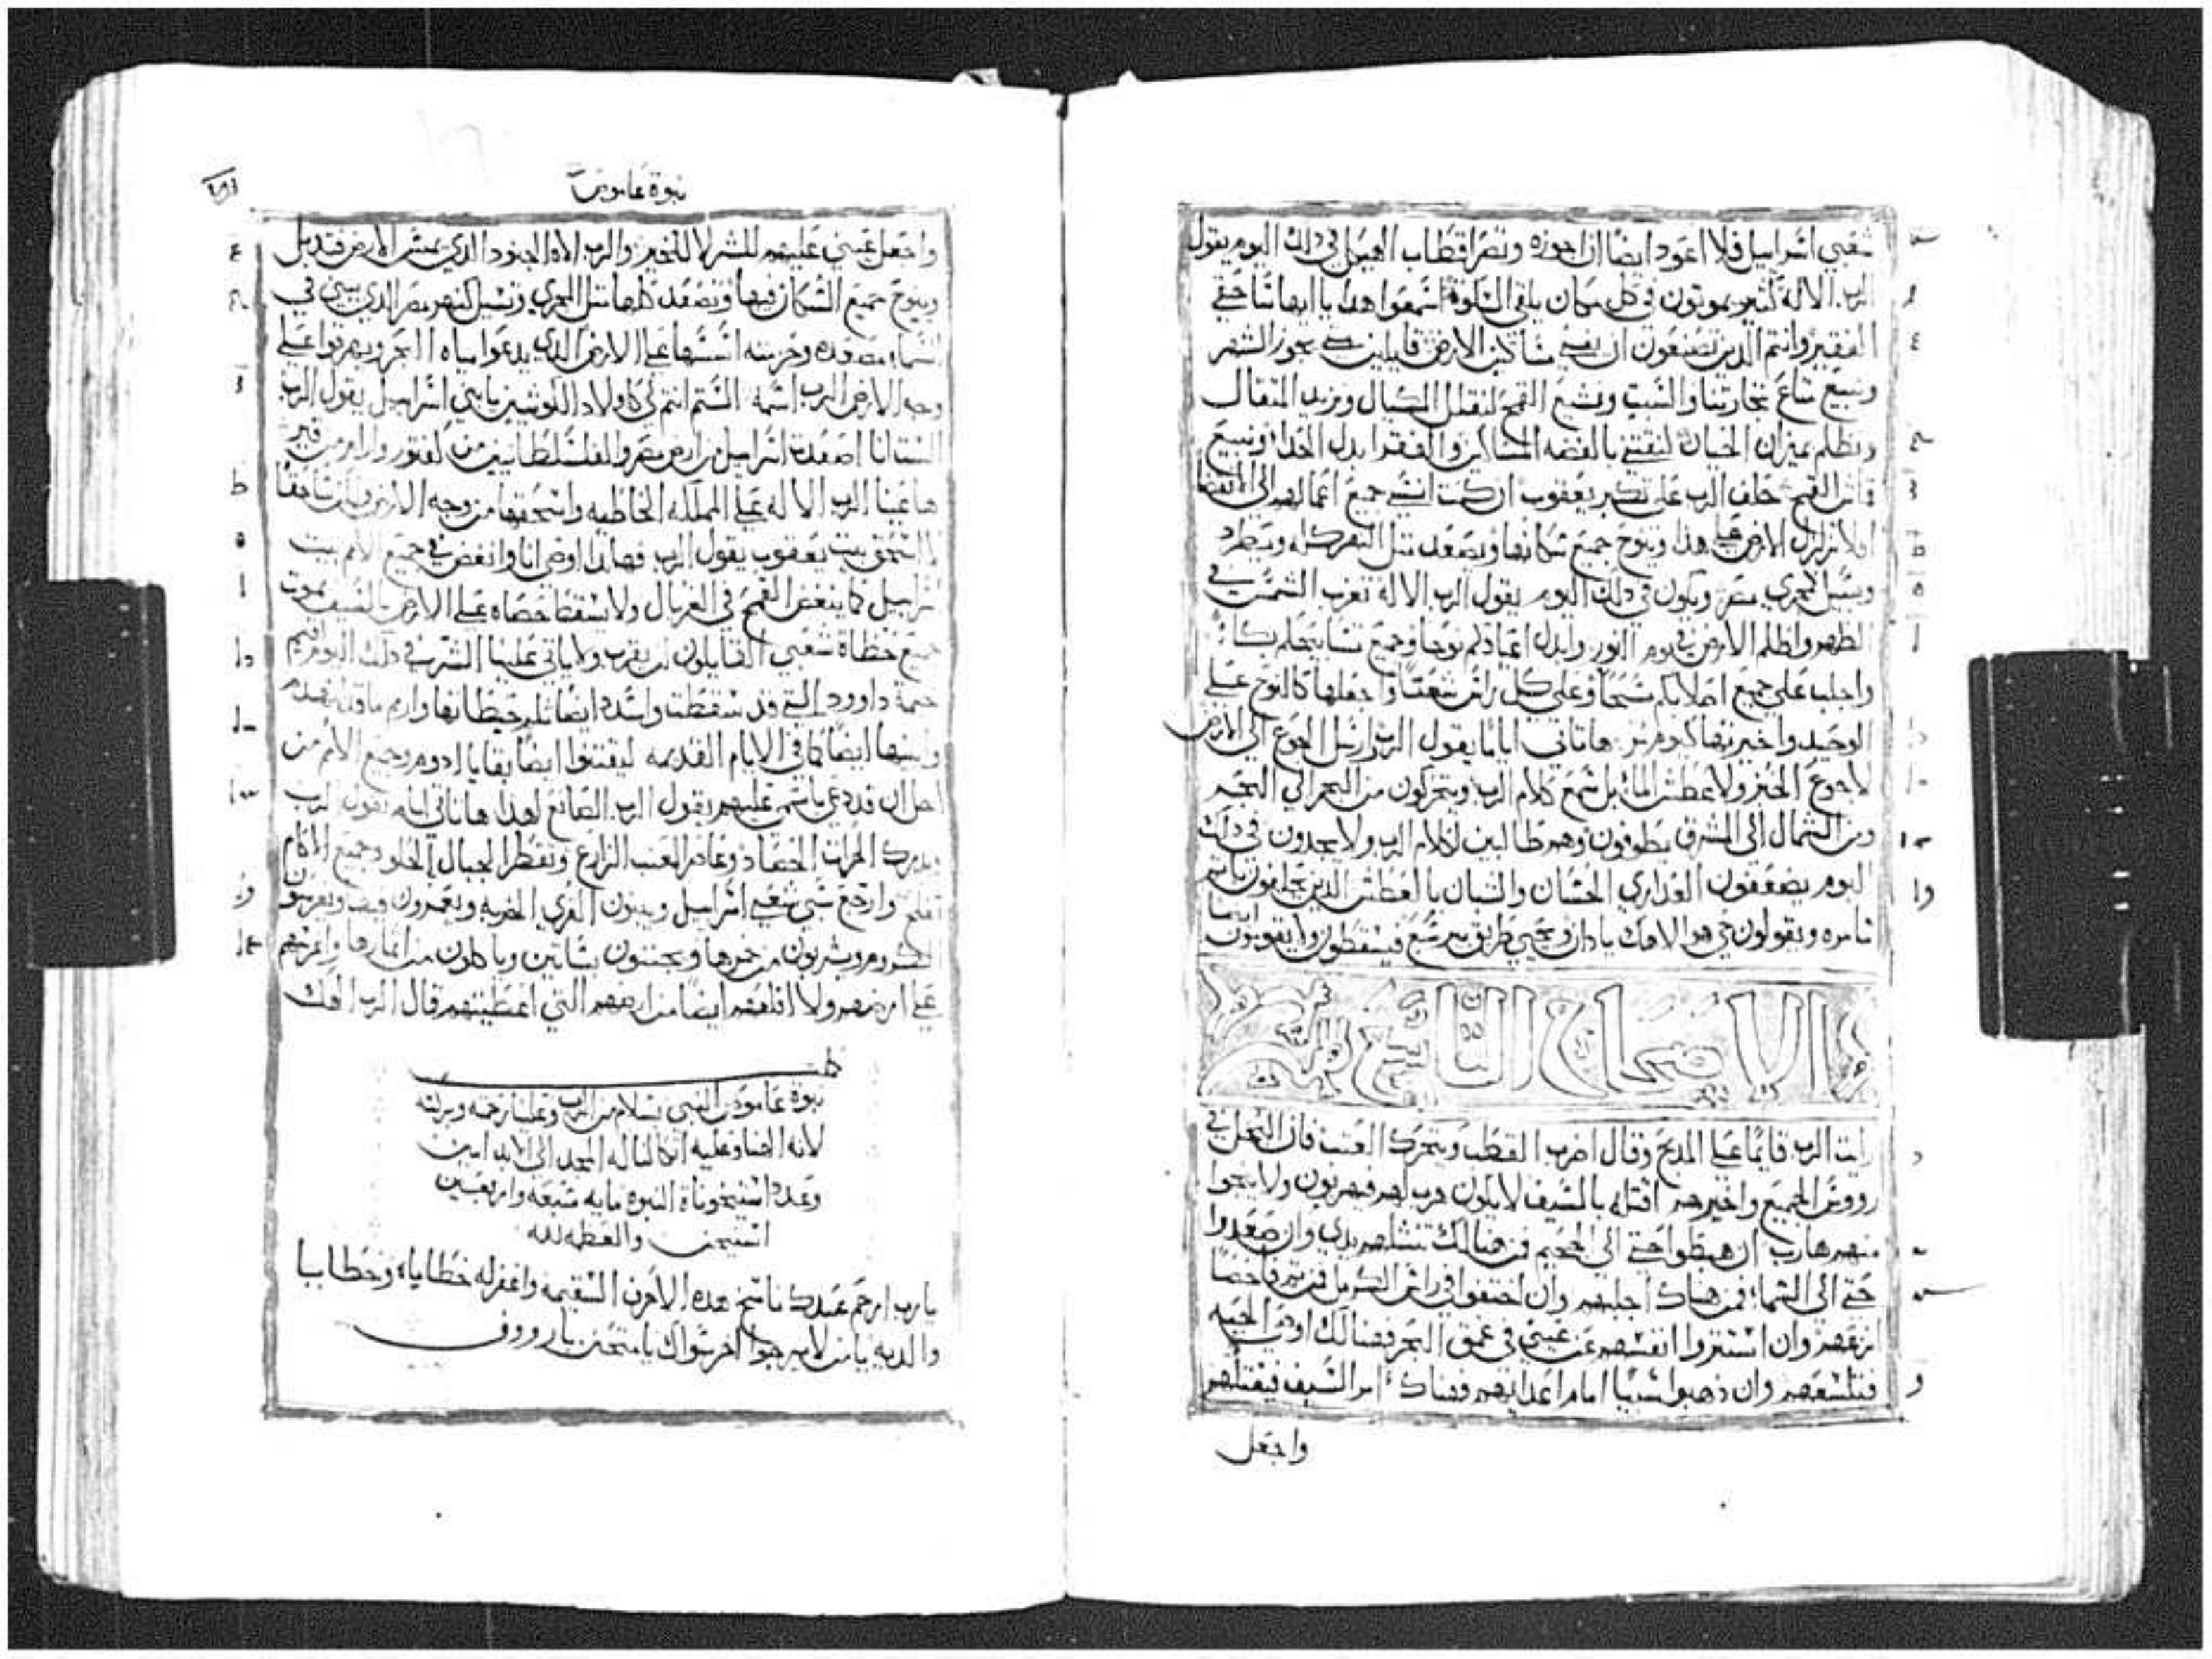 شعبي اسراييل فلا اعود ايضا ان اجوزه وتصر اقطاب الهيكل في ذلك اليوم يقول
الرب الاله كثير يموتون في كل مكان يلقى السكوت اسمعوا هذا يا ايها ساحقي
الفقير وانتم الذين تصنعون ان يفني مساكين الارض قايلين متى يجوز الشهر
ونبيع متاع تجارتنا والسبت ونشيع القمح لنقلل المكيال ونزيد المثقال
ونظلم بميزان الخيانة لنقتني بالفضه المساكين والفقرا بدل الحذا ونبيع
قاش القمح حلف الرب على تكبر يعقوب ان كنت انسى جميع اعمالهم الى الانقضا
افلا تزلزل الارض على هذا وينوح جميع سكانها ويصعد مثل النهر كله ويطرد
ويسيل كمجرى مصر ويكون في ذلك اليوم يقول الرب الاله تغرب الشمس في
الظهر واظلم الارض في يوم النور وابدل اعيادكم نوحا وجميع تسابيحكم بكا
واجلب على جميع اصلابكم مسحا وعلى كل راس شعثا واجعلها كالنوح على
الوحيد واخيرتها كيوم مر ها تاتي اياما يقول الرب وارسل الجوع الى الارض
لا جوع الخبز ولا عطش الما بل سمع كلام الرب ويتحركون من البحر الى البحر
ومن الشمال الى المشرق يطوفون وهم طالبين لكلام الرب ولا يجدون في ذلك
اليوم يضعفون العذارى الحسان والشبان بالعطش الذين يحلفون باثم
سامره ويقولون حي هو الاهك يا دان ويحيى طريق بير سبع فيسقطون ولا يقومون ايضا
الاصحاح التاسع
رايت الرب قايما على المذبح وقال اضرب القطب ويتحرك العتب فان البخل في
رووس الجميع واخيرهم اقتله بالسيف لا يكون هرب لهم فيهربون ولا ينجوا
منهم هارب ان هبطوا حتى الى الجحيم فمن هنالك تنشلهم يدي وان صعدوا
حتى الى السما فمن هناك اجلبهم وان اختفوا في راس الكرمل فمن ثم فاحصا
انزعهم وان استتروا انفسهم عن عيني في عمق البحر فهنالك اوصي الحيه
فتلسعهم وان ذهبوا سبيا امام اعدايهم فهناك امر السيف فيقتلهم
واجعل
نبوة عاموص
واجعل عيني عليهم للشر لا للخير والرب الاه الجنود الذي يمس الارض فتذبل
وينوح جميع السكان فيها وتصعد كلها مثل المجرى وتسيل كنهر مصر الذي يبني في
السما مصعده وحزمته اسسها على الارض الذي يدعوا مياه البحر ويهرقها على
وجه الارض الرب اسمه الستم انتم لي كاولاد الكوشيين يا بني اسراييل يقول الرب
الست انا اصعدت اسراييل من ارض مصر والفلسطانيين من كفتور وارام من قير
ها عينا الرب الاله على المملكه الخاطيه واسحقها من وجه الارض ولكن ساحقا
لا اسحق بيت يعقوب يقول الرب فهانذا اوصي انا وانفض في جميع الامم بيت
اسراييل كما ينفض القمح في الغربال ولا تسقط حصاه على الارض بالسيف يموت
جميع خطاة شعبي القايلون لن يقرب ولا ياتي علينا الشر في ذلك اليوم اقيم
خيمة داوود التي قد سقطت واسد ايضا ثلم حيطانها وارم ما قد انهدم
وابنيها ايضا كما في الايام القديمه ليقتنوا ايضا بقايا ادوم وجميع الامم من
اجل ان قد دعي باسمي عليهم يقول الرب الصانع لهذا ها تاتي ايام يقول الرب
ويدرك الحراث الحصاد وعاصر العنب الزارع وتقطر الجبال الحلو وجميع الاكام
تفلح وارجع سبي شعبي اسراييل ويبنون القرى الخربه ويعمرون فيها ويغرسون
الكروم ويشربون من خمرها ويجتنون بساتين وياكلون من اثمارها واغرسهم
على ارضهم ولا اقلعهم ايضا من ارضهم التي اعطيتهم قال الرب الاهك
كملت
نبوة عاموص النبي بسلام من الرب وعلينا رحمه وبركته
لانه الهنا وعليه اتكالنا له المجد الى الابد امين
وعدد استيخونات النبوه مايه سبعه واربعين
استيخن والعظمه لله
يا رب ارحم عبدك ناسخ هذه الاحرف السقيمه واغفر له خطاياه وخطايا
والديه يا من لا يرجوا اخر سواك يا متحنن يا رووف